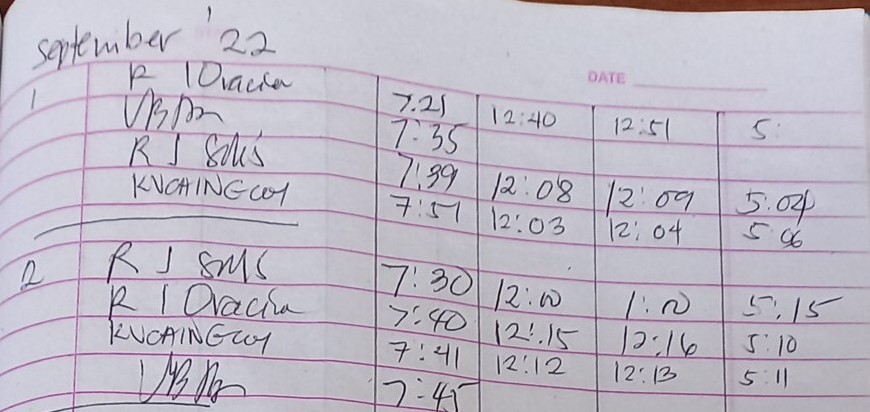 September '22
DATE
1 R I Oracion 7:21 12:40 12:51 5:
7:35
R J 7:39 12:08 12:09 5:04
KVCAINGCOY 7:51 12:03 12:04 5:06
2 R J 7:30 12:00 1:00 5:15
R I Oracion 7:40 12:15 12:16 5:10
KVCAINGCOY 7:41 12:12 12:13 5:11
7:45